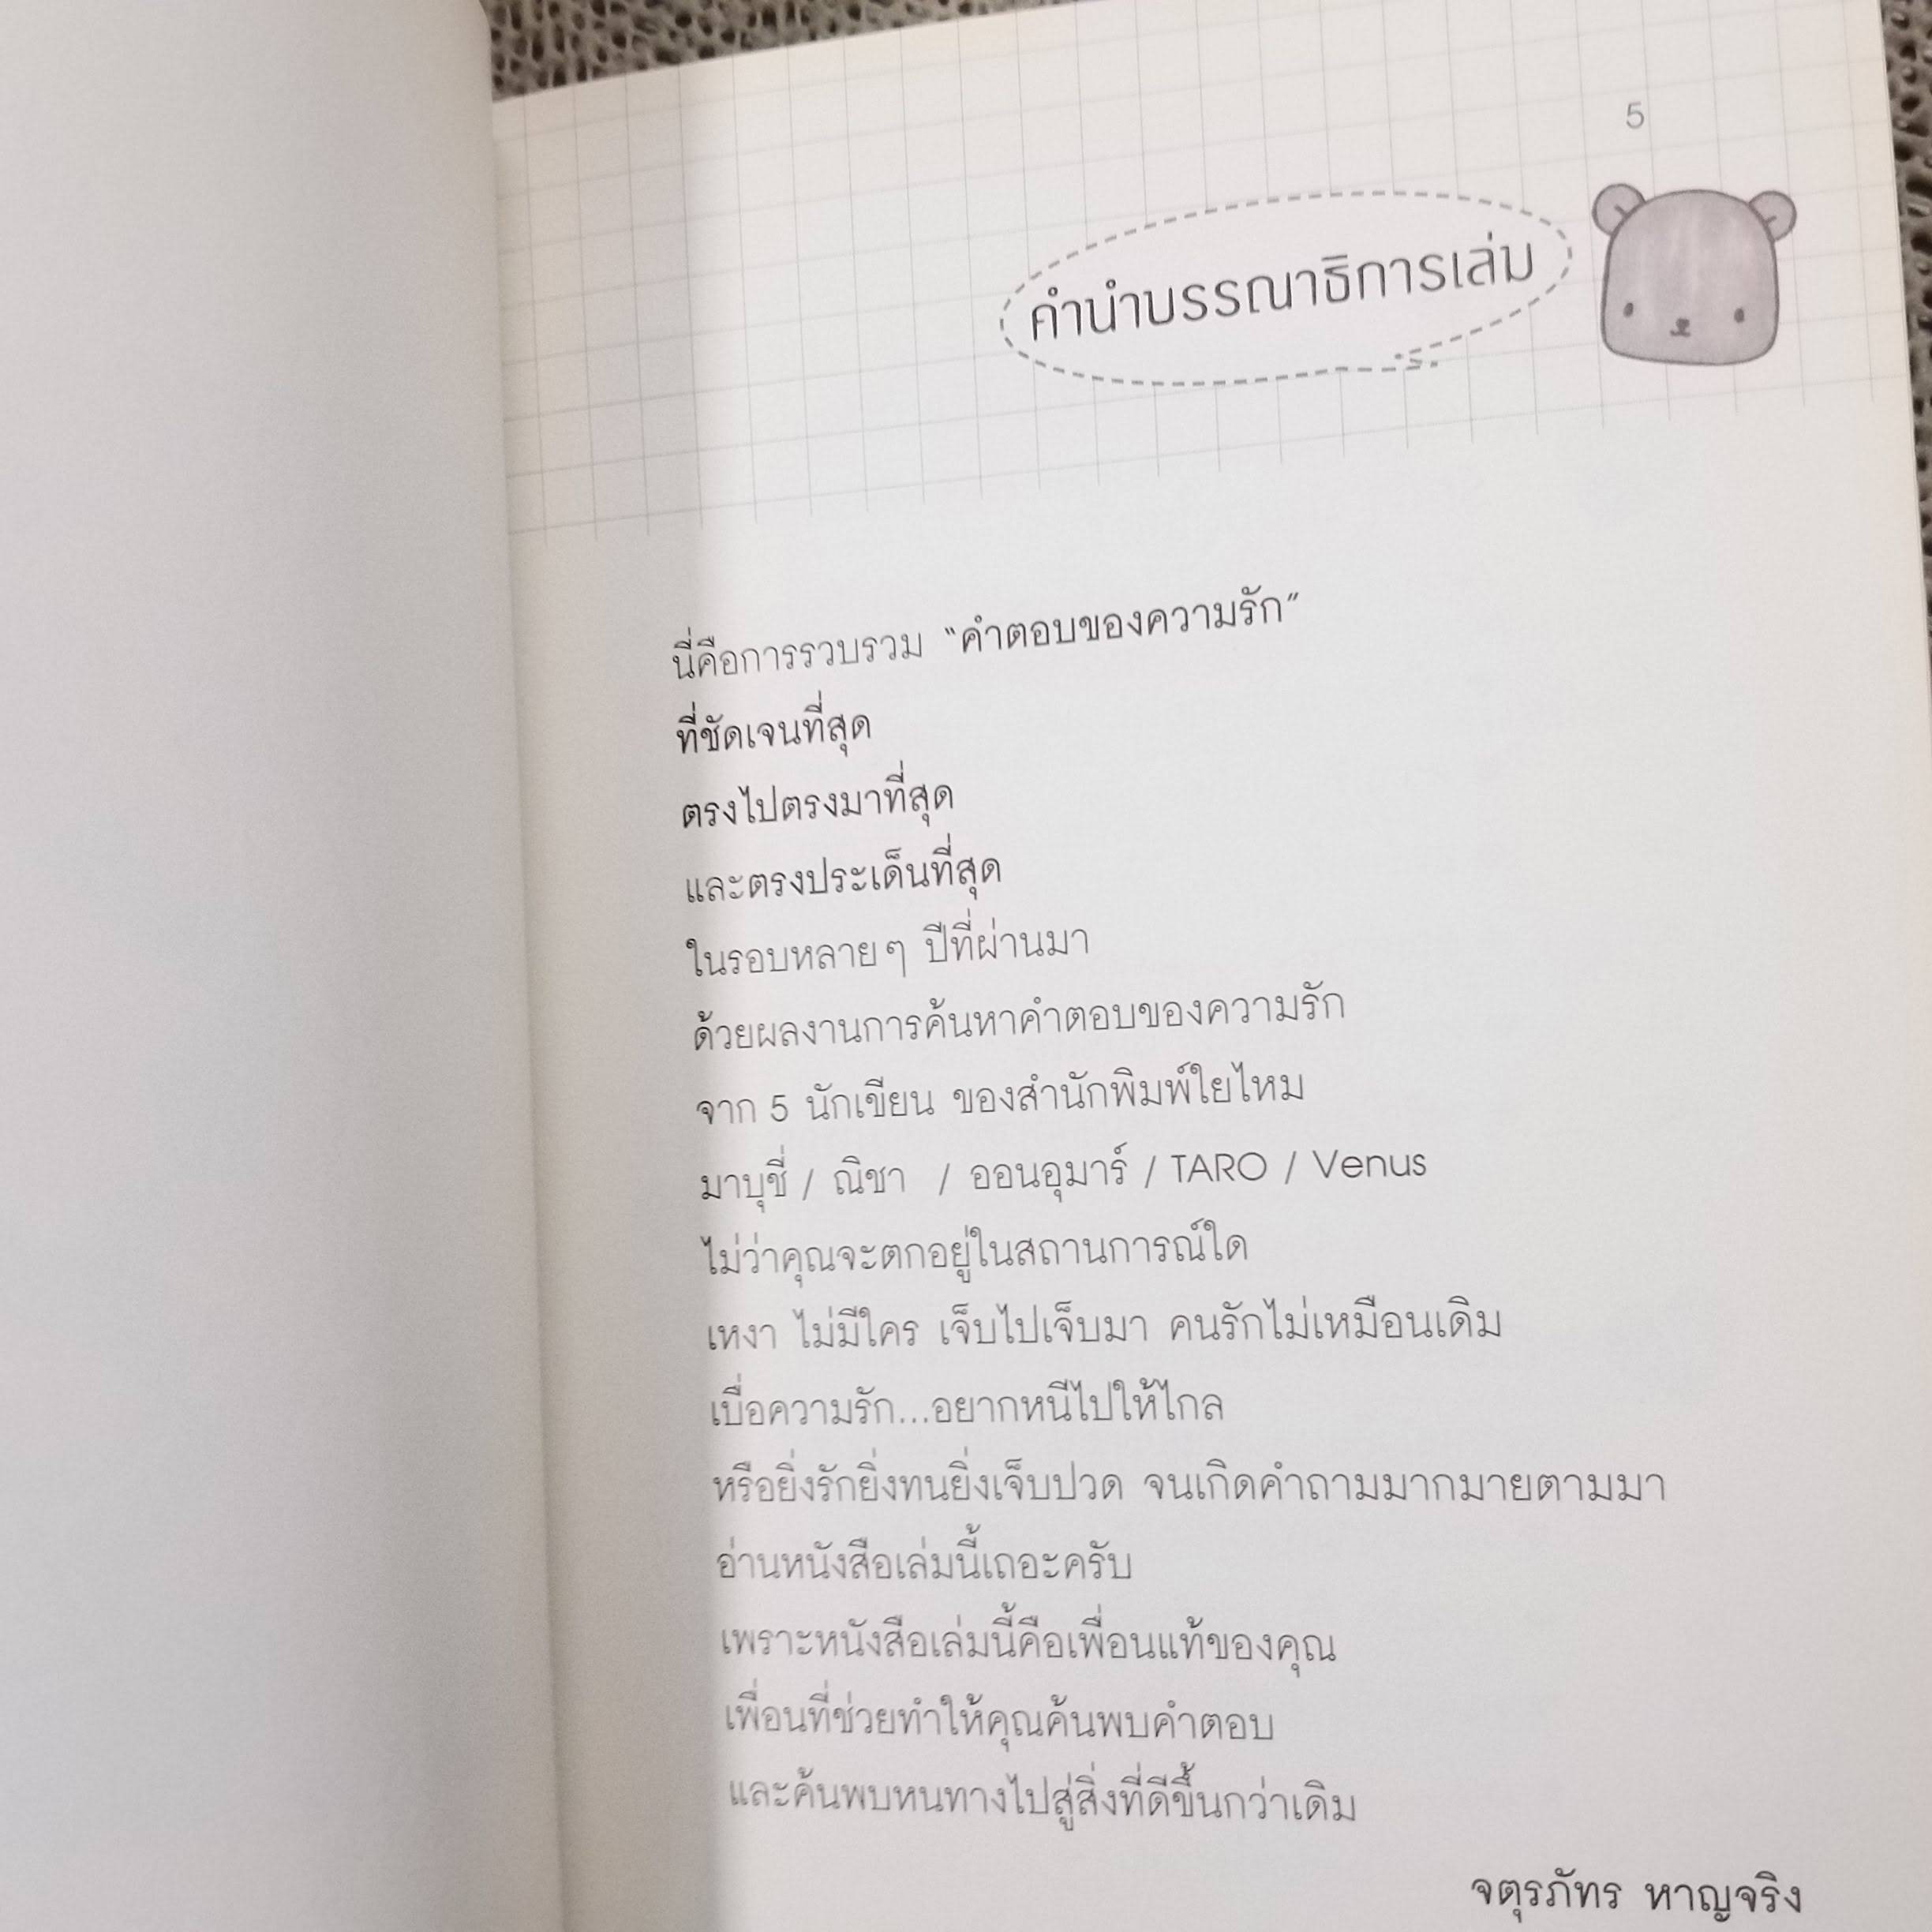 5
คำนำบรรณาธิการเล่ม
นี่คือการรวบรวม “คำตอบของความรัก”
ที่ชัดเจนที่สุด
ตรงไปตรงมาที่สุด
และตรงประเด็นที่สุด
ในรอบหลายๆ ปีที่ผ่านมา
ด้วยผลงานการค้นหาคำตอบของความรัก
จาก 5 นักเขียน ของสำนักพิมพ์ใยไหม
มาบุชี่ / ณิชา / ออนอุมาร์ / TARO / Venus
ไม่ว่าคุณจะตกอยู่ในสถานการณ์ใด
เหงา ไม่มีใคร เจ็บไปเจ็บมา คนรักไม่เหมือนเดิม
เบื่อความรัก...อยากหนีไปให้ไกล
หรือยิ่งรักยิ่งทนยิ่งเจ็บปวด จนเกิดคำถามมากมายตามมา
อ่านหนังสือเล่มนี้เถอะครับ
เพราะหนังสือเล่มนี้คือเพื่อนแท้ของคุณ
เพื่อนที่ช่วยทำให้คุณค้นพบคำตอบ
และค้นพบหนทางไปสู่สิ่งที่ดีขึ้นกว่าเดิม
จตุรภัทร หาญจริง